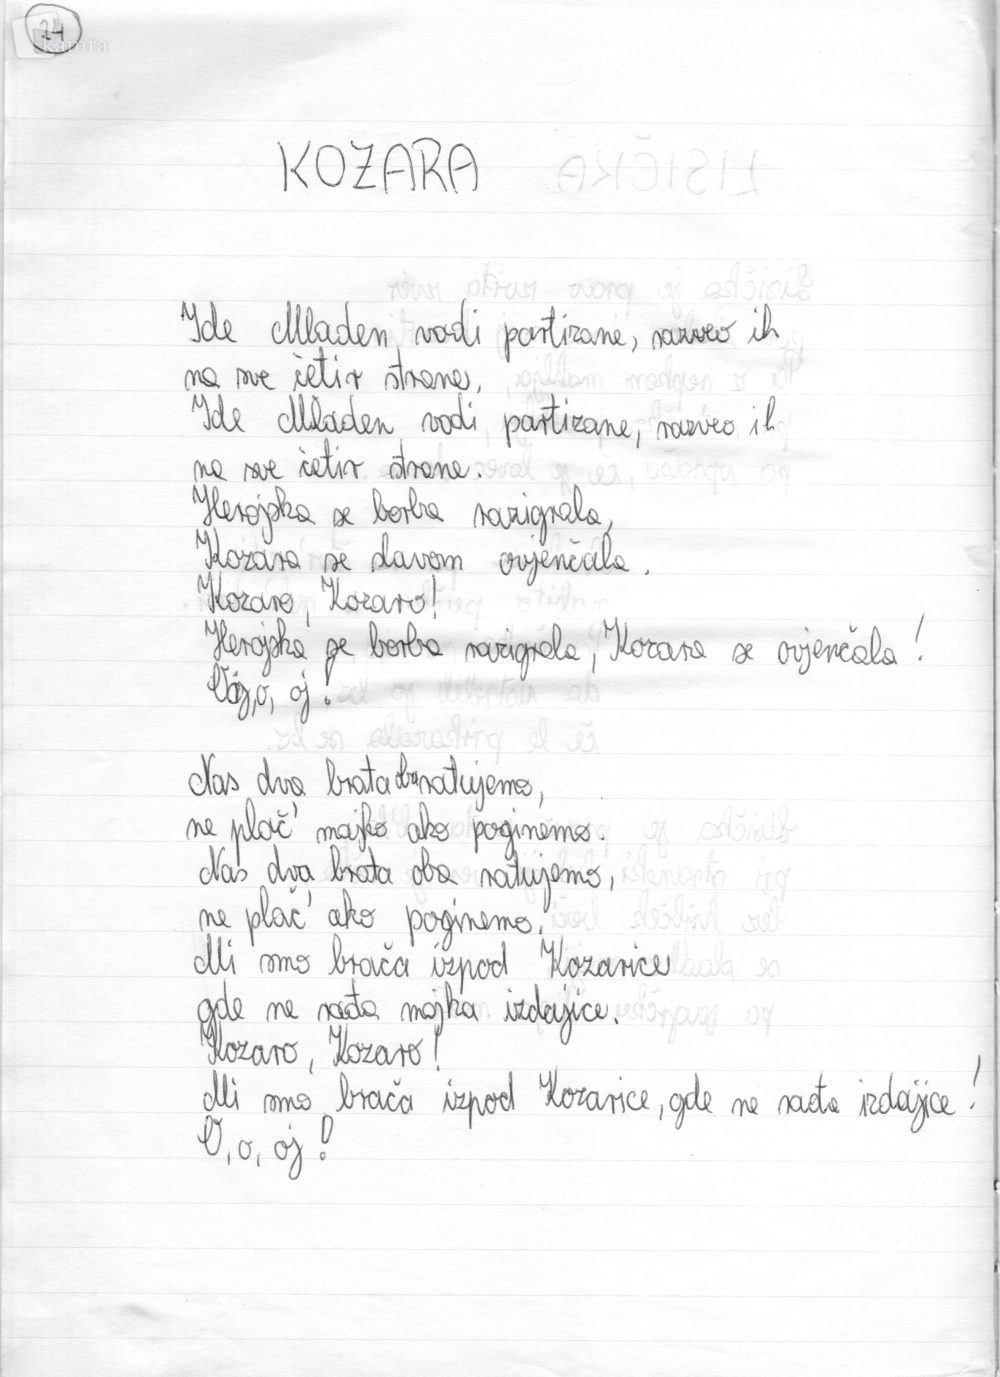 24
kamra
KOZARA
Ide Mladen vodi partizane, razveo ih
na sve četir strane,
Ide Mladen vodi partizane, razveo ih
na sve četir strane.
Herojska se borba razigrala,
Kozara se slavom ovjenčala.
Kozaro, Kozaro!
Herojska se borba razigrala, Kozara se ovjenčala!
o, oj!
Nas dva brata oba ratujemo,
ne plač' majko ako poginemo.
Nas dva brata oba ratujemo,
ne plač' ako poginemo.
Mi smo brača izpod Kozarice
gde ne rađa majka izdajice.
Kozaro, Kozaro!
Mi smo brača izpod Kozarice, gde ne rađa izdajice!
O, o, oj!